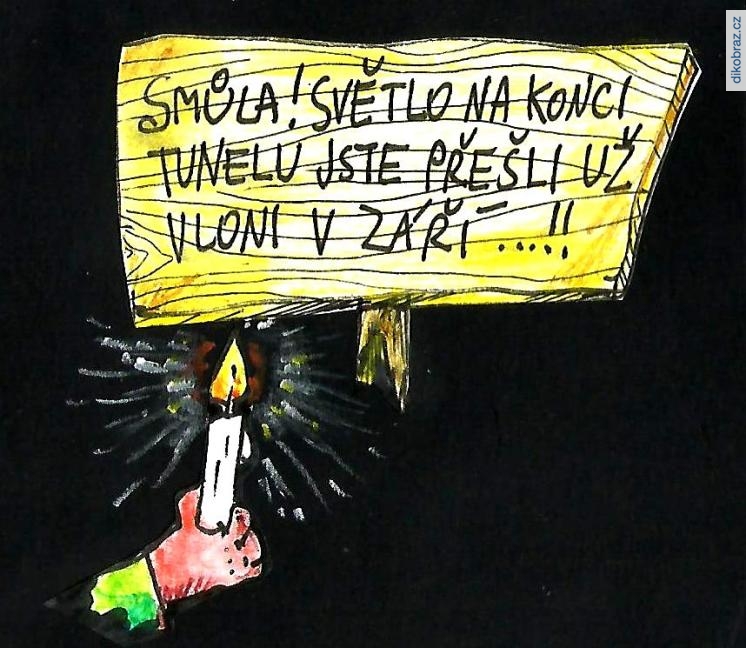 SMŮLA! SVĚTLO NA KONCI
TUNELU JSTE PŘEŠLI UŽ
VLONI V ZÁŘÍ ....!!
dikobraz.cz